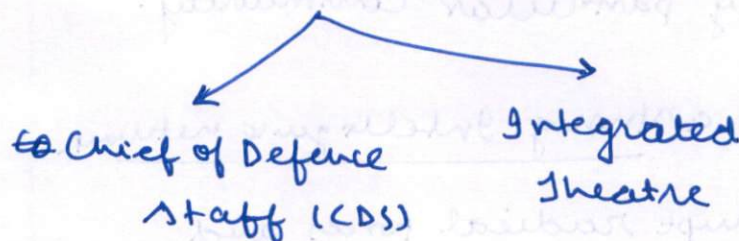 Chief of Defence
Staff (CDS)
Integrated
Theatre